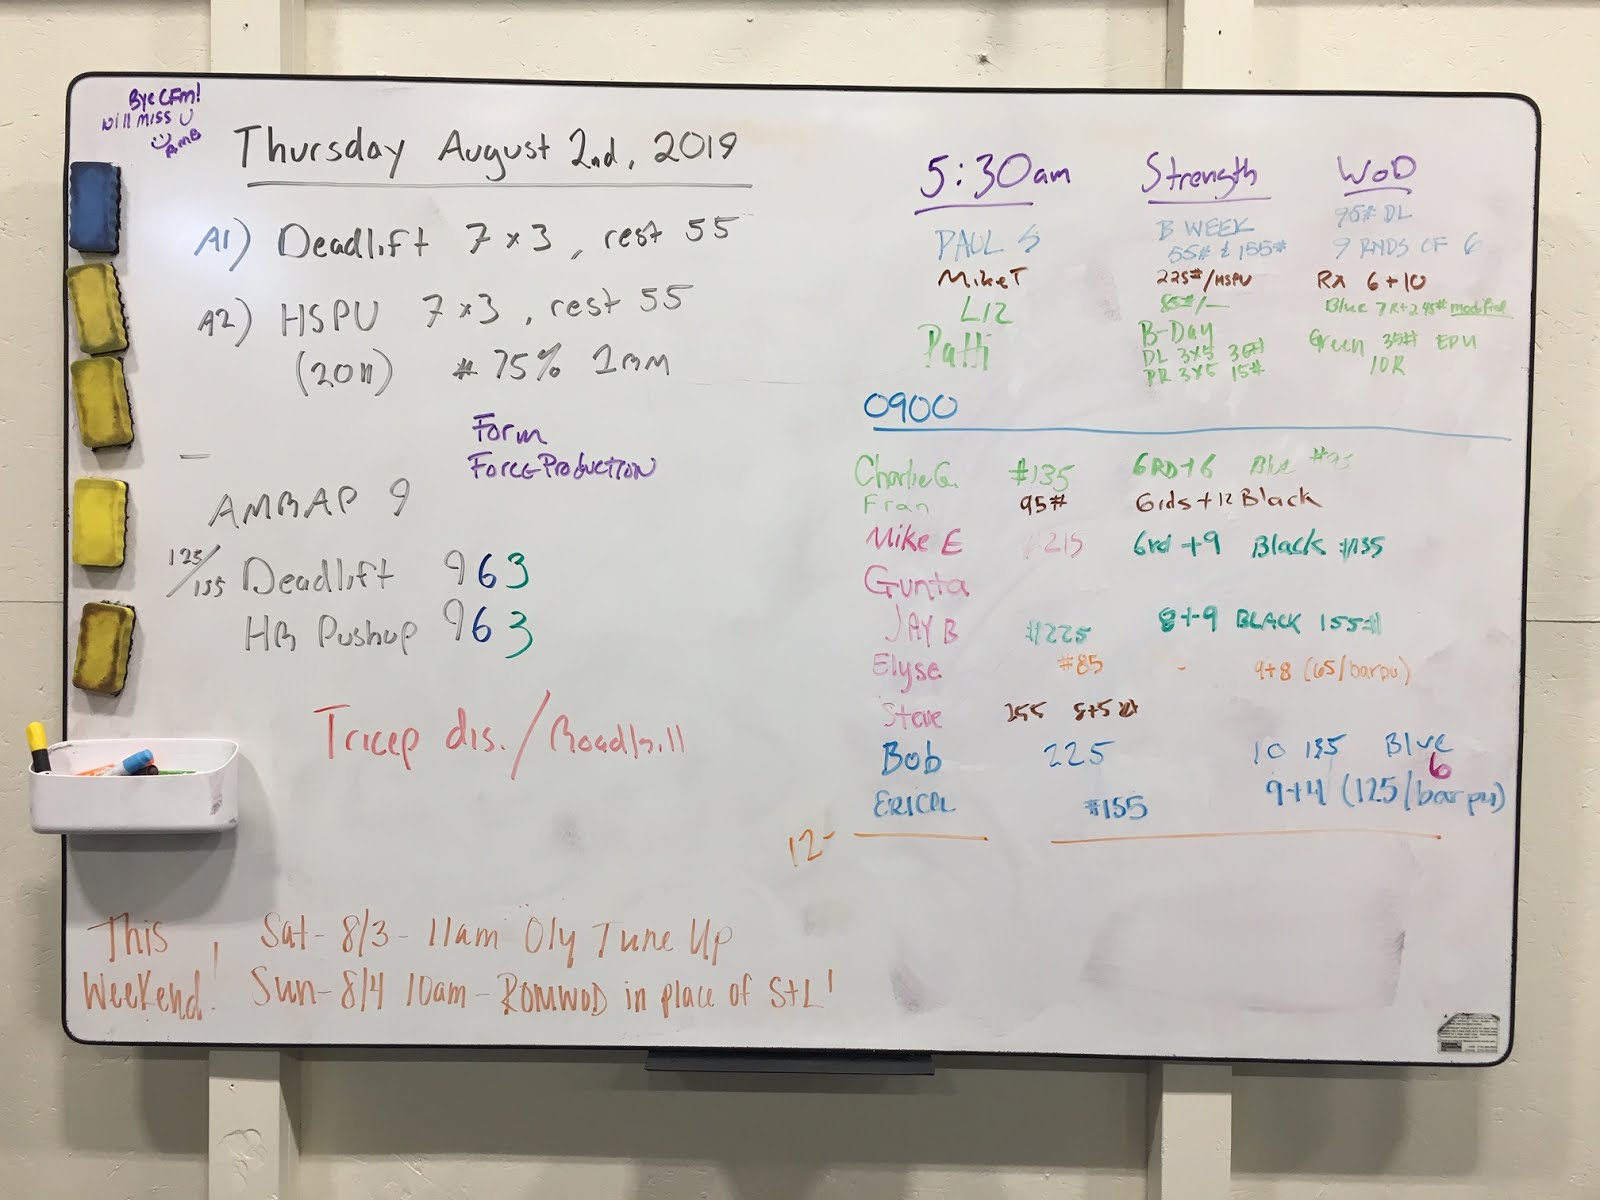 Bye CFM!
will miss U
AMB
Thursday August 2nd, 2019
A1) Deadlift 7 x 3, rest 55
A2) HSPU 7 x 3, rest 55
(2011) # 75% 1RM
Form
Force Production
—
AMRAP 9
125/155 Deadlift 9 6 3
HR Pushup 9 6 3
Tricep dis./Roadkill
This Weekend!
Sat - 8/3 - 11am Oly Tune Up
Sun - 8/4 10am - ROMWOD in place of StL!
5:30am Strength WOD
PAUL S B WEEK 95# DL
55# & 155# 9 RNDS OF 6
Mike T 225#/HSPU Rx 6+10
LIZ 85#/— Blue 7R+2 45# modified
Patti B-Day Green 35# EPU
DL 3x5 35# 10R
PR 3x5 15#
0900
Charlie G. #135 6RD+6 Blue #95
Fran 95# 6rds+12 Black
Mike E #215 6rd+9 Black #135
Gunta
JAY B #225 8+9 BLACK 155#
Elyse #85 - 9+8 (65/barpu)
Steve 255 8+5
Bob 225 10 135 Blue
6
ERICA #155 9+4 (125/barpu)
12-